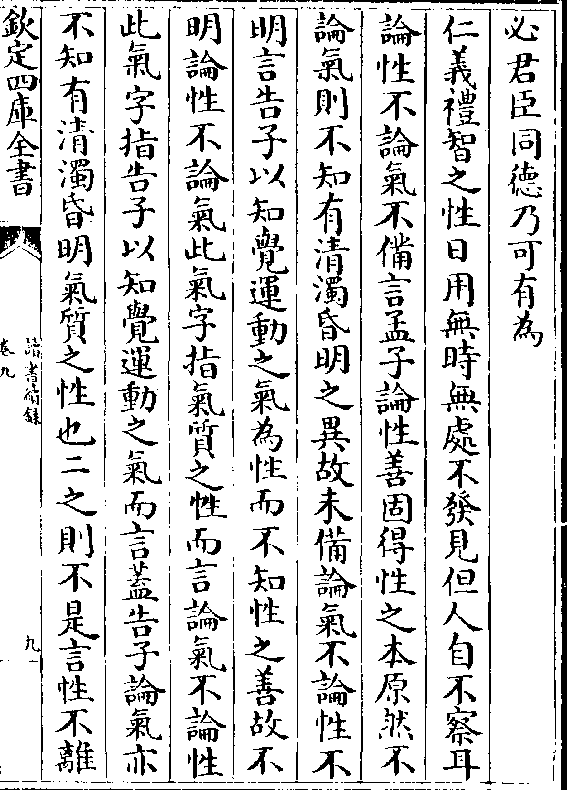 必君臣同德乃可有為
仁義禮智之性日用無時無處不發見但人自不察耳
論性不論氣不備言孟子論性善固得性之本原然不
論氣則不知有清濁昏明之異故未備論氣不論性不
明言告子以知覺運動之氣為性而不知性之善故不
明論性不論氣此氣字指氣質之性而言論氣不論性
此氣字指告子以知覺運動之氣而言蓋告子論氣亦
不知有清濁昏明氣質之性也二之則不是言性不離
欽定四庫全書
讀書續録
卷九
九